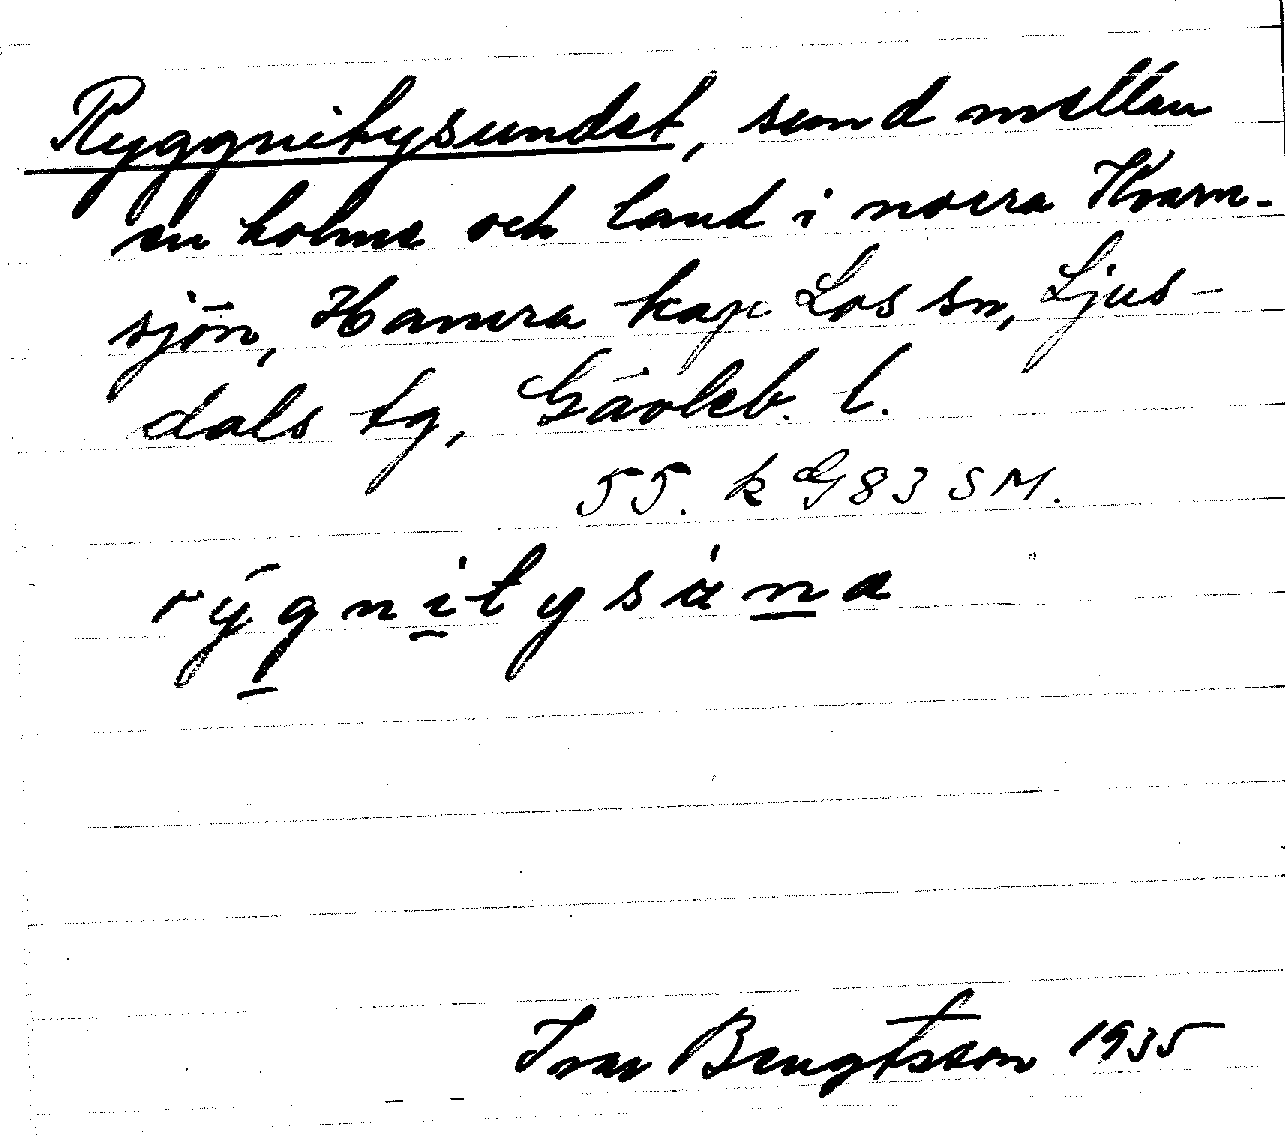 Ryggnitysundet, sund mellan
en holme och land i norra Kvarn-
sjön, Hamra kap Los sn, Ljus-
dals tg, Gävleb. l.
55. k G83 SM.
rýgnitysúna
Ivar Bengtsson 1935